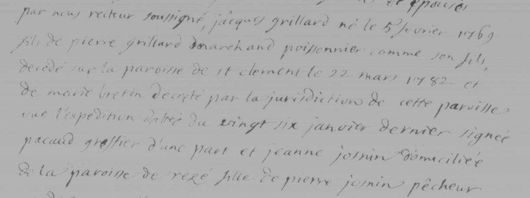 et epouses
par nous recteur soussigné, jacques grillard né le 5 fevrier 1769
fils de pierre grillard marchand poissonnier comme son fils,
decedé sur la paroisse de st clement le 22 mars 1782 et
de marie decreté par la jurisdiction de cette paroisse
vue l'expedition du vingt six janvier dernier signée
pacaud greffier d'une part et jeanne josnin domiciliée
de la paroisse de rezé fille de pierre josnin pêcheur